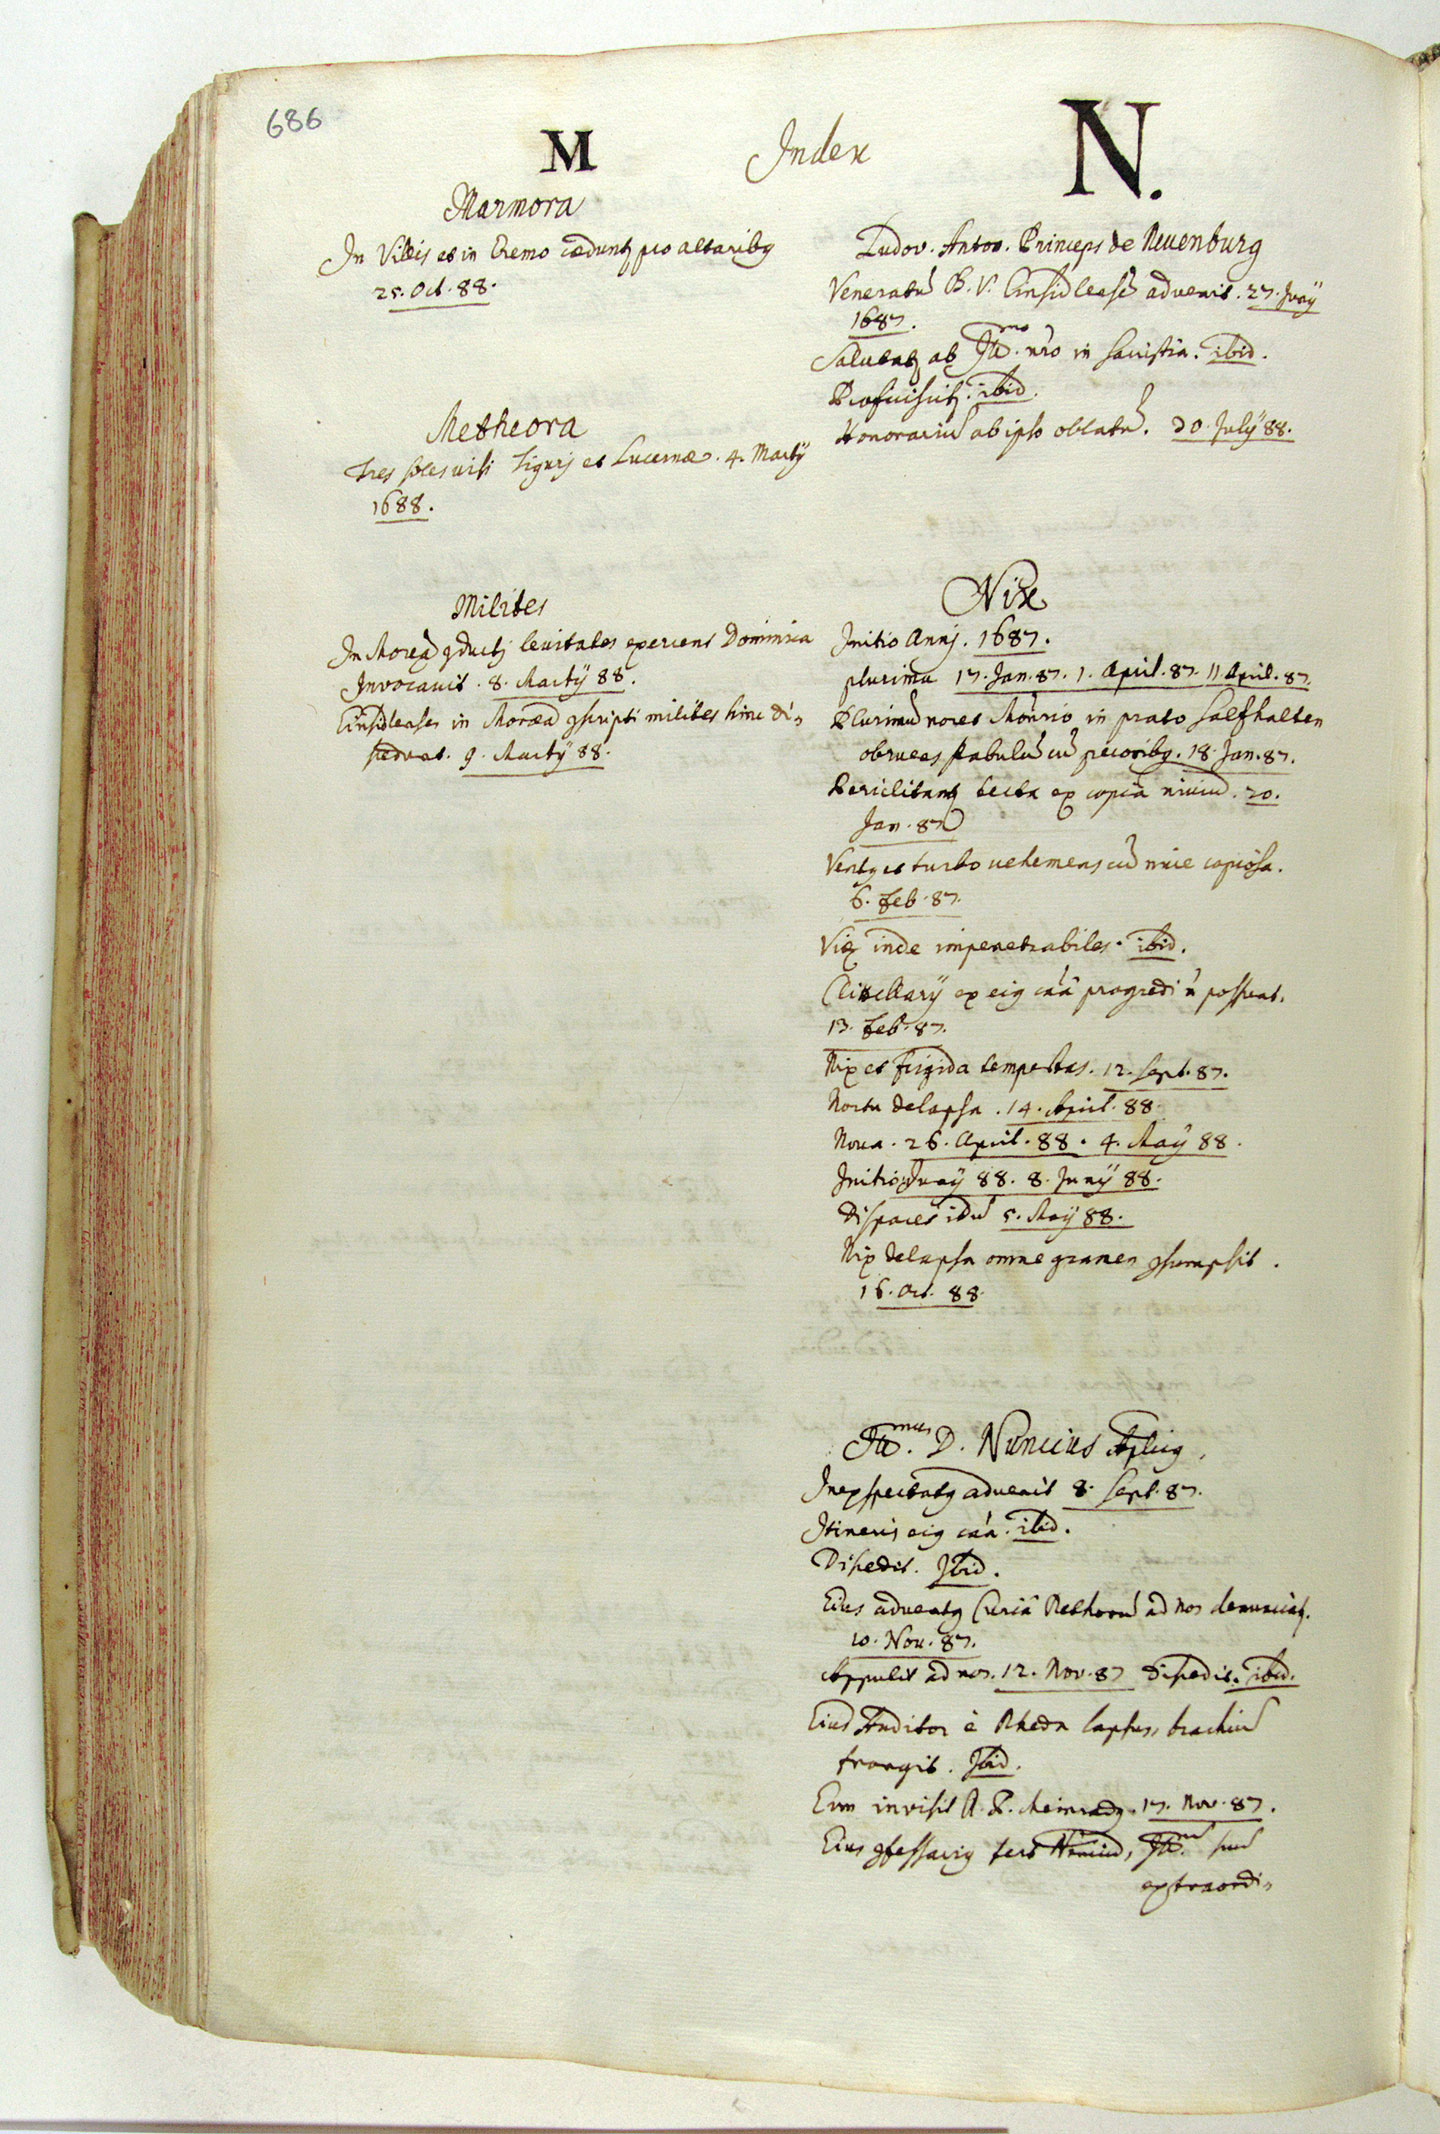 686
M
Index
N.
Marmora
In Villis et in Eremo cædunt᷑ pro altaribꝰ
25. Oct. 88.
Metheora
Tres soles visi Tiguri et Lucernæ. 4. Martÿ
1688.
Milites
In Moreā ꝯducti levitates exercent Dominica
Invocavit. 8. Martÿ 88.
Einsidlenses in Moræā ꝯscripti milites hinc di-
scedunt. 9. Martÿ 88.
Ludov. Anton. Princeps de Neuenburg
Veneratū B. V. Einsidlensē advenit. 27. Junÿ
1687.
Salutat᷑ ab Ill.mo nr̄o in sacristia. ibid.
Proficiscit᷑. ibid.
Honorariū ab ipso oblatū. 30. Julÿ 88.
Nix
Initio Annj. 1687.
plurima 17. Jan. 87. 1. April. 87. 11 April. 87.
Plurimū nocet Monrio in prato
obruens stabulū cū pecoribꝰ. 18. Jan. 87.
Periclitant᷑ tecta ex copiâ niviū. 20.
Jan. 87
Ventꝰ et turbo vehemens cū nive copiosa.
6. Feb. 87.
Viæ inde impenetrabiles. ibid.
Clitellarÿ ex eiꝰ cā̂ progredi n̄ possunt.
13. Feb. 87.
Nix et frigida tempestas. 12. Sept. 87.
Noctu delapsa. 14. April. 88.
Nova. 26. April. 88. 4. Maÿ 88.
Initio Junÿ 88. 8. Junÿ 88.
5. Maÿ 88.
Nix delapsa omne gramen ꝯsumpsit.
16. Oct. 88.
Ill.mus D. Nuncius Aplicꝰ
Inexspectatꝰ advenit 8. Sept. 87.
Itineris eiꝰ cā̄a. ibid.
Discedit. Ibid.
Eius adventꝰ Curiâ Rethorū ad nos denunciat᷑.
10. Nov. 87.
Appulit ad nos. 12. Nov. 87 discedit. ibid.
Eius Auditor è Rheda lapsus, brachiū
frangit. Ibid.
Eum invisit A. P. Meinradꝰ. 17. Nov. 87.
Eius ꝯfessariꝰ fert Ill.mū suū
extraordi-